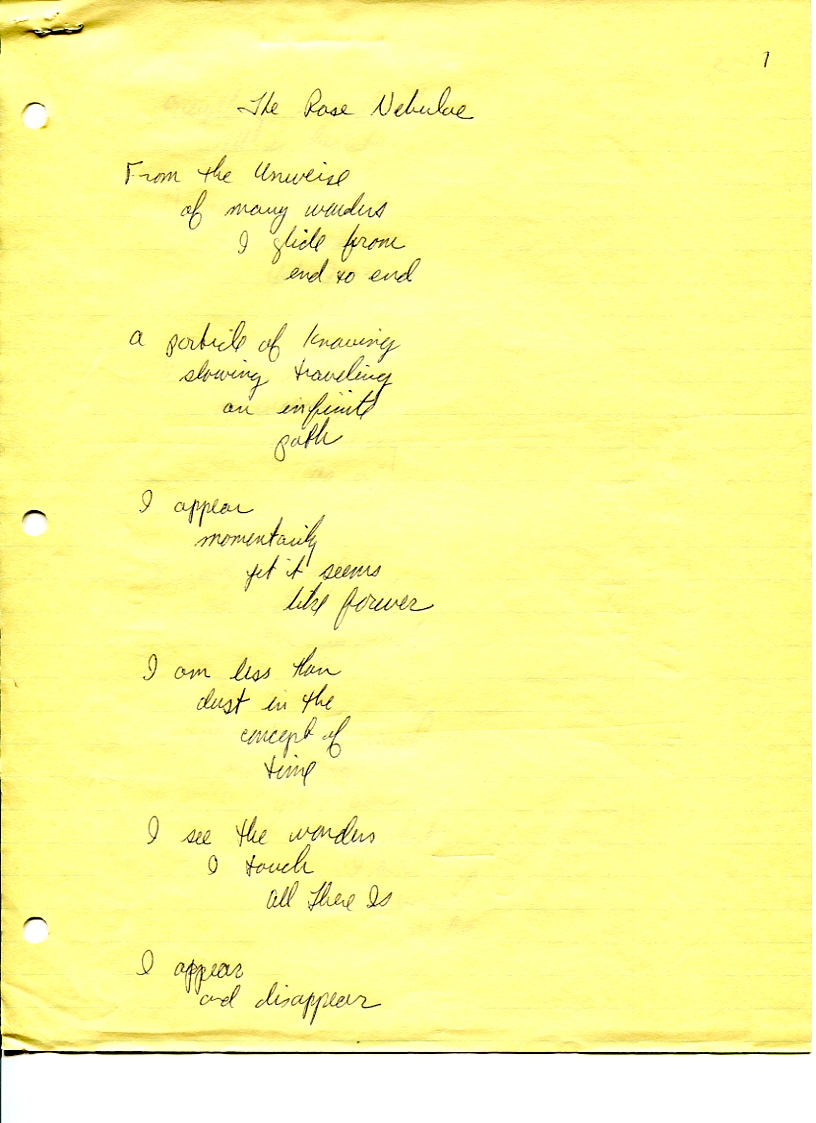 1
The Rose Nebulae
From the Universe
of many wonders
I glide from
end to end
a particle of knowing
slowing traveling
on infinite
path
I appear
momentarily
yet it seems
like forever
I am less than
dust in the
concept of
time
I see the wonders
I touch
all There Is
I appear
and disappear